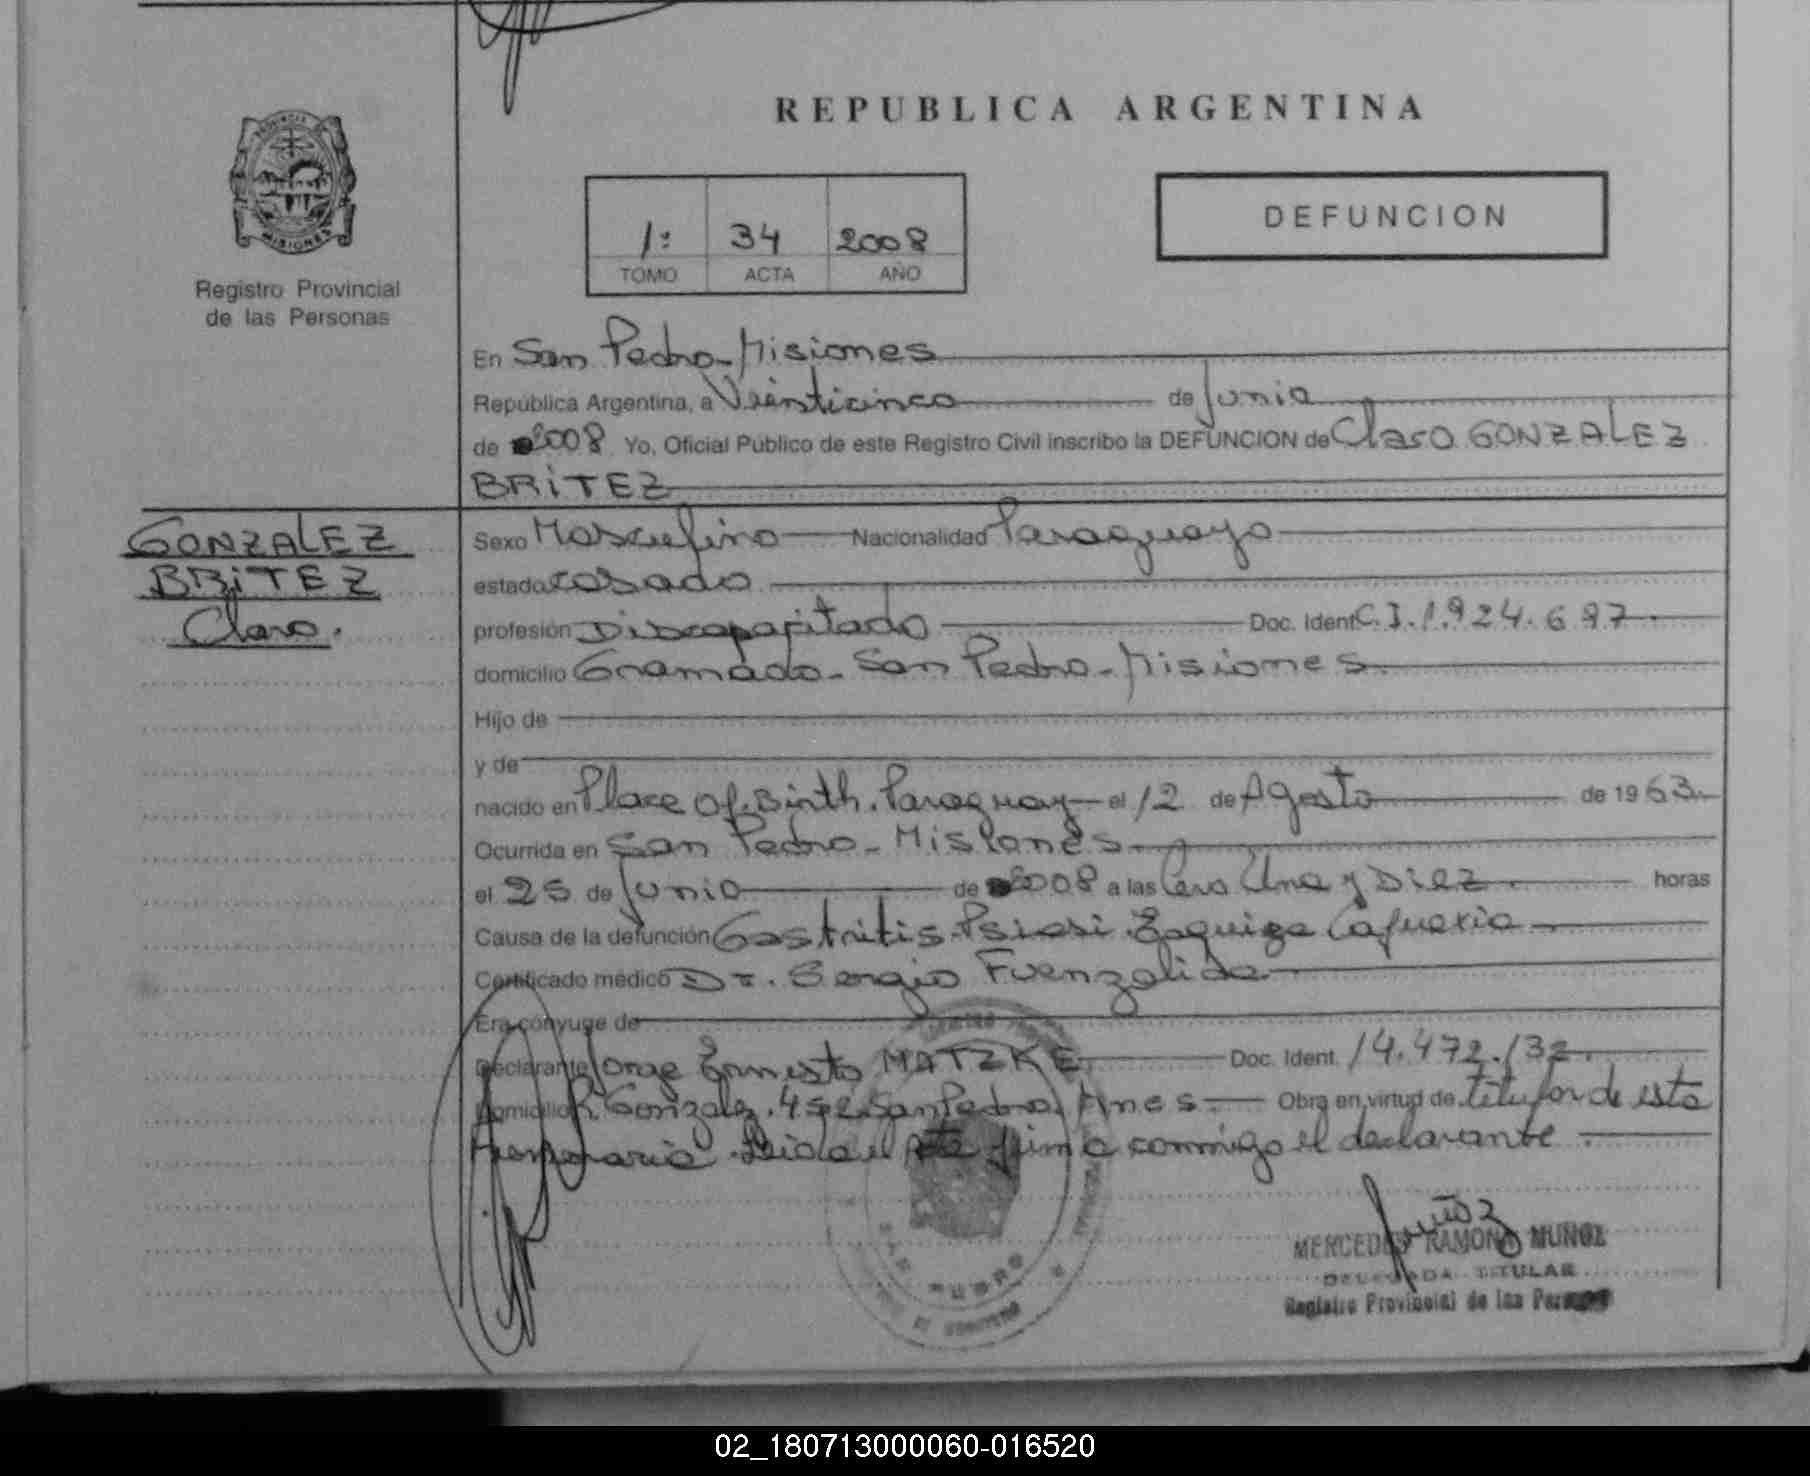 REPUBLICA ARGENTINA
PROVINCIA
MISIONES
Registro Provincial
de las Personas
1º 34 2008
TOMO ACTA AÑO
DEFUNCION
En San Pedro-Misiones
República Argentina, a Veinticinco de Junio
de 2008 Yo, Oficial Público de este Registro Civil inscribo la DEFUNCION de Claro GONZALEZ
BRITEZ
GONZALEZ
BRITEZ
Claro.
Sexo Masculino Nacionalidad Paraguayo
estado casado
profesión Discapacitado Doc. Ident C.I. 1.924.697.
domicilio Gramado - San Pedro - Misiones.
Hijo de
y de
nacido en Place Of. Birth. Paraguay el 12 de Agosto de 1963
Ocurrida en San Pedro - Misiones
el 25 de Junio de 2008 a las Cero Una y Diez horas
Causa de la defunción Gastritis
Certificado médico Dr. Sergio Fuenzalida
Era cónyuge de
Declarante Jorge Ernesto MATZKE Doc. Ident. 14.472.132.
Domicilio R. Gonzalez. San Pedro. Mnes. Obra en virtud de titular de esta
Funeraria. Leida el Acta firma conmigo el declarante
SAN PEDRO
Muñoz
MERCEDES RAMONA MUÑOZ
DELEGADA TITULAR
Registro Provincial de las Personas
02_180713000060-016520